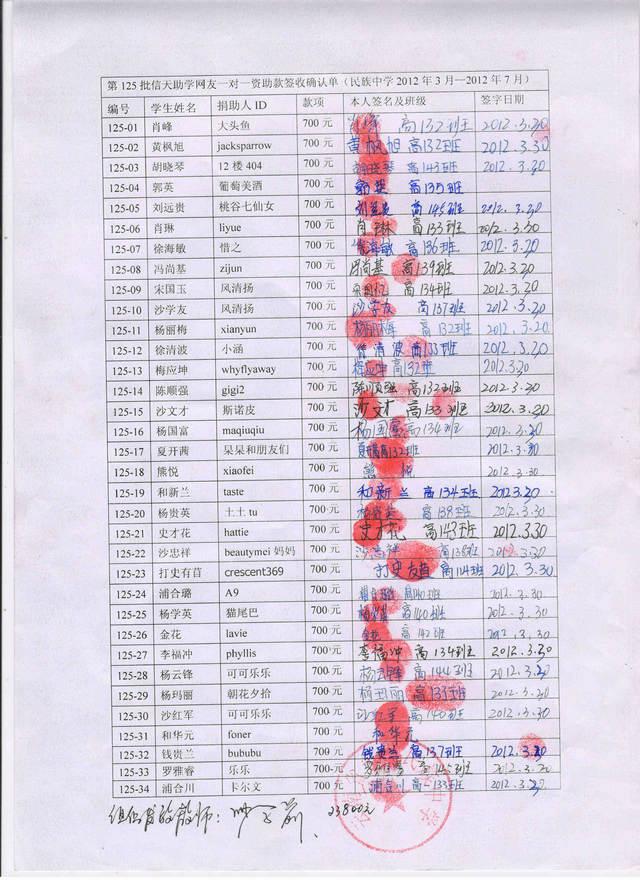 第125批信天助学网友一对一资助款签收确认单（民族中学2012年3月—2012年7月）
编号 学生姓名 捐助人ID 款项 本人签名及班级 签字日期
125-01 肖峰 大头鱼 700元 肖峰 高132班 2012.3.30
125-02 黄枫旭 jacksparrow 700元 黄枫旭 高132班 2012.3.30
125-03 胡晓琴 12楼404 700元 胡晓琴 高143班 2012.3.30
125-04 郭英 葡萄美酒 700元 郭英 高135班
125-05 刘远贵 桃谷七仙女 700元 刘远贵 高145班 2012.3.30
125-06 肖琳 liyue 700元 肖琳 高133班 2012.3.30
125-07 徐海敏 惜之 700元 徐海敏 高136班 2012.3.20
125-08 冯尚基 zijun 700元 冯尚基 高139班 2012.3.20
125-09 宋国玉 风清扬 700元 高134班 2012.3.20
125-10 沙学友 风清扬 700元 沙学友 高137班 2012.3.20
125-11 杨丽梅 xianyun 700元 杨丽梅 高132班 2012.3.20
125-12 徐清波 小涵 700元 徐清波 高133班 2012.3.30
125-13 梅应坤 whyflyaway 700元 梅应坤 高132班 2012.3.20
125-14 陈顺强 gigi2 700元 陈顺强 高132班 2012.3.30
125-15 沙文才 斯诺皮 700元 沙文才 高133班 2012.3.30
125-16 杨国富 maqiuqiu 700元 杨国富 高134班 2012.3.30
125-17 夏开茜 呆呆和朋友们 700元 夏开茜 高132班 2012.3.30
125-18 熊悦 xiaofei 700元 熊悦 2012.3.30
125-19 和新兰 taste 700元 和新兰 高134班 2012.3.20
125-20 杨贵英 土土tu 700元 杨贵英 高138班 2012.3.30
125-21 史才花 hattie 700元 史才花 高143班 2012.3.30
125-22 沙忠祥 beautymei妈妈 700元 沙忠祥 高138班 2012.3.30
125-23 打史有苗 crescent369 700元 打史有苗 高114班 2012.3.30
125-24 浦合璐 A9 700元 高140班 2012.3.30
125-25 杨学英 猫尾巴 700元 杨学英 高140班 2012.3.30
125-26 金花 lavie 700元 金花 高142班 2012.3.30
125-27 李福冲 phyllis 700元 李福冲 高134班 2012.3.20
125-28 杨云锋 可可乐乐 700元 杨云锋 高144班 2012.3.30
125-29 杨玛丽 朝花夕拾 700元 杨玛丽 高133班 2012.3.30
125-30 沙红军 可可乐乐 700元 沙红军 高140班 2012.3.30
125-31 和华元 foner 700元 和华元
125-32 钱贵兰 bububu 700元 钱贵兰 高137班 2012.3.30
125-33 罗雅睿 乐乐 700元 罗雅睿 高145班 2012.3.20
125-34 浦合川 卡尔文 700元 浦合川 高一133班 2012.3.20
教师： 23800元